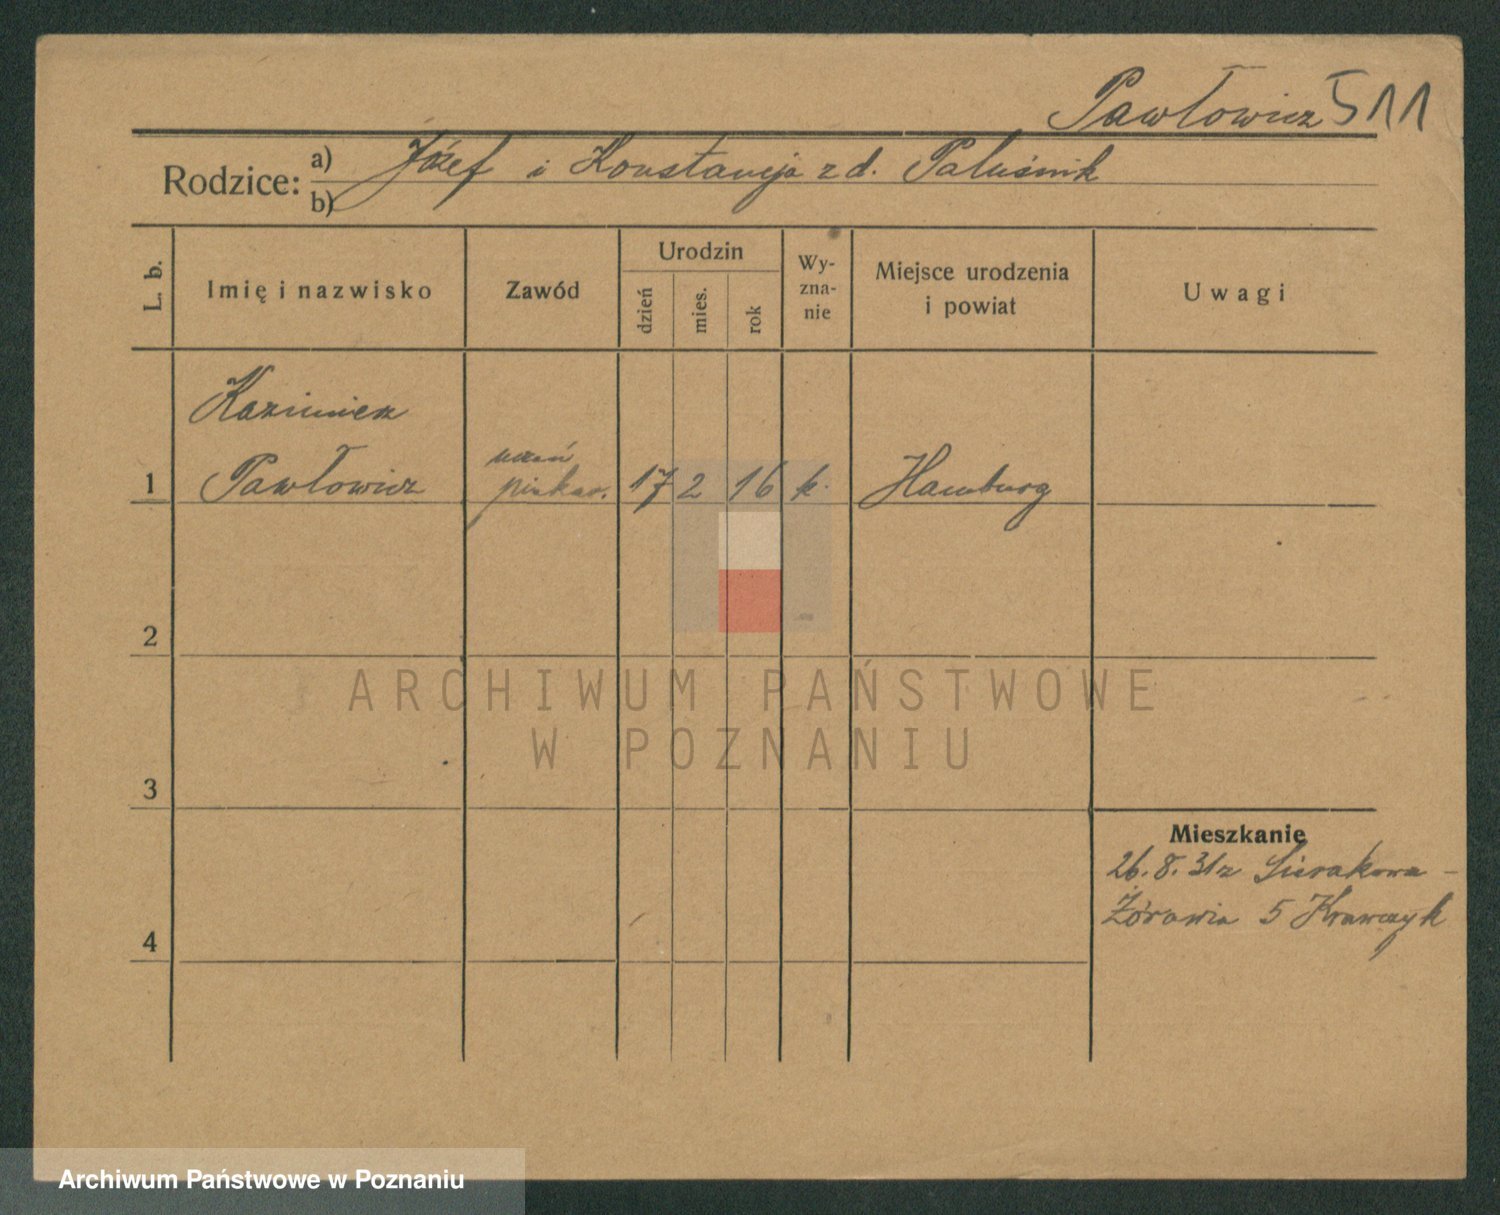 Pawłowicz 511
Rodzice: a) Józef i Konstancja z d. Paluśnik
b)
L. b. Imię i nazwisko Zawód Urodzin dzień mies. rok Wy-zna-nie Miejsce urodzenia i powiat Uwagi
Kazimierz
uczeń
1 Pawłowicz piekar. 17 2 16 k. Hamburg
2
ARCHIWUM PAŃSTWOWE
W POZNANIU
3
Mieszkanie
26.8.31 z Sierakowa -
Żórawia 5 Krawczyk
4
Archiwum Państwowe w Poznaniu